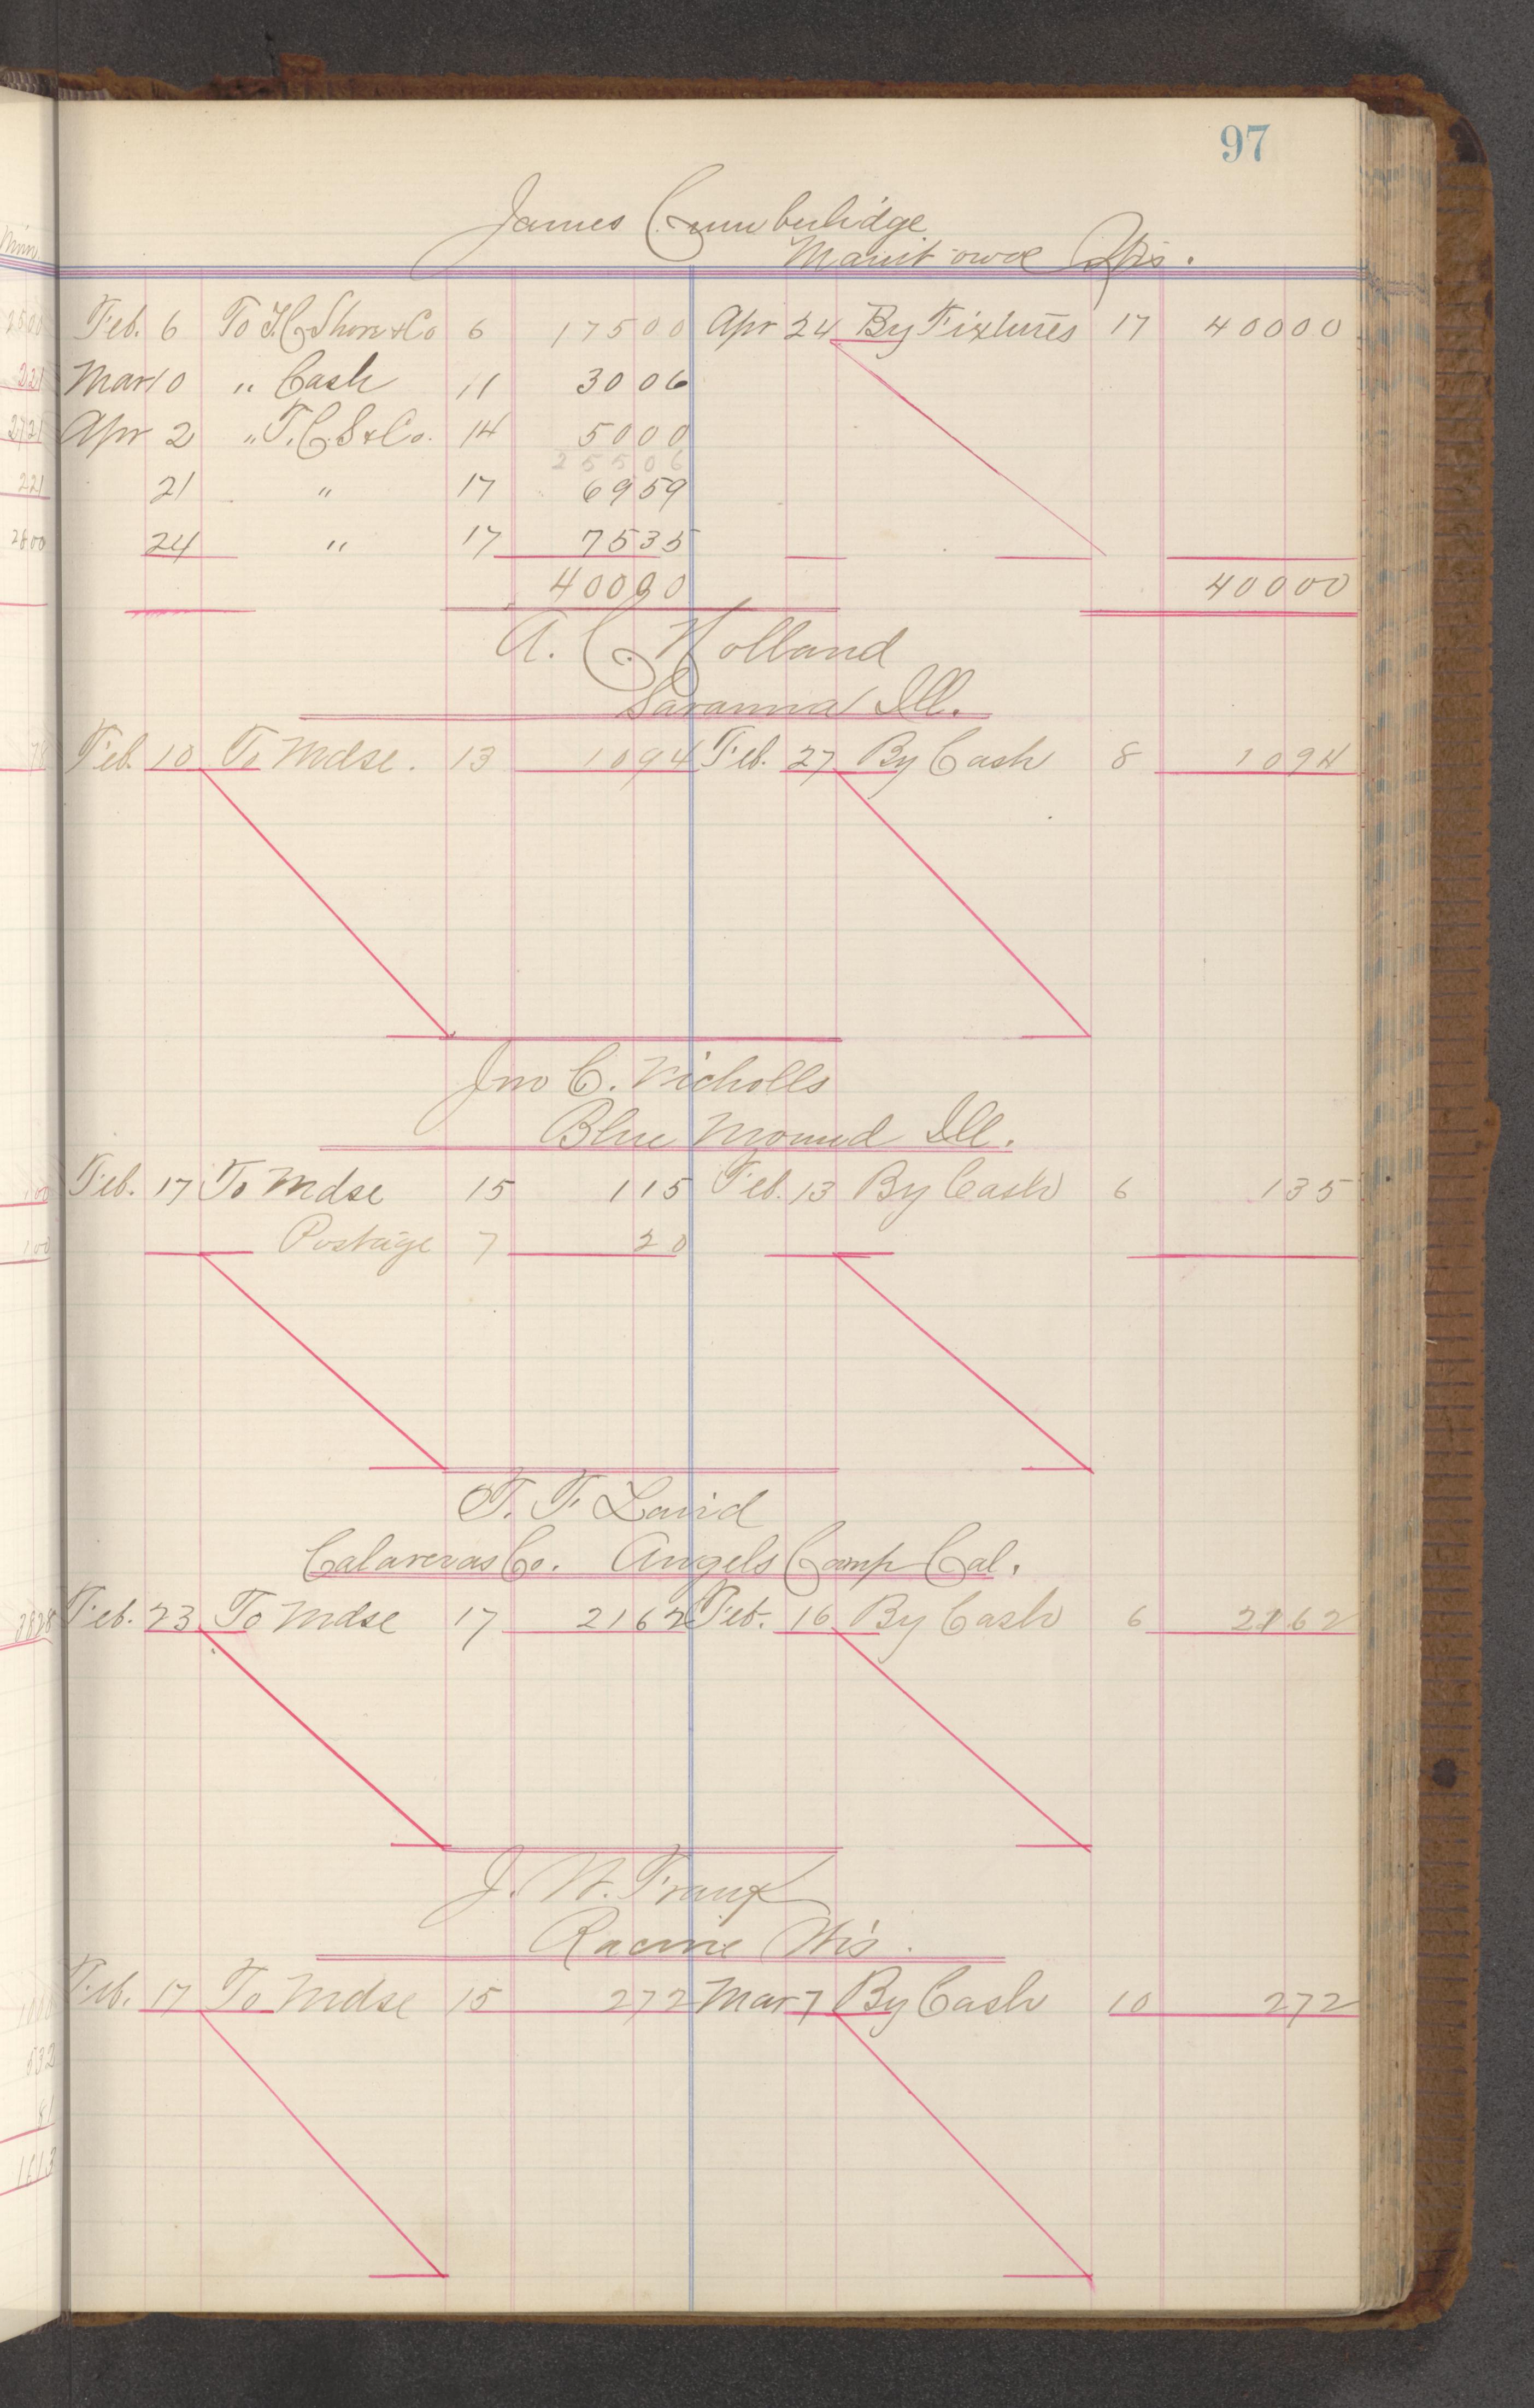 97
James Cumberlidge
Manitowoc Wis.
Feb. 6 To T. C. Shove & Co 6 175 00 Apr 24 By Fixtures 17 400 00
Mar 10 " Cash 11 30 06
Apr 2 " T. C. S & Co. 14 50 00
255 06
21 " 17 69 59
24 " 17 75 35
400 00 400 00
A. C. Holland
Savanna Ill.
Feb. 10 To Mdse. 13 10 94 Feb. 27 By Cash 8 10 94
Jno C. Nicholls
Blue Mound Ill.
Feb. 17 To Mdse 15 1 15 Feb. 13 By Cash 6 1 35
Postage 7 20
T. F. Laird
Calaveras Co. Angels Camp Cal.
Feb. 23 To Mdse 17 21 62 Feb. 16 By Cash 6 21 62
J. W.
Racine Wis.
Feb. 17 To Mdse 15 2 72 Mar 7 By Cash 10 2 72